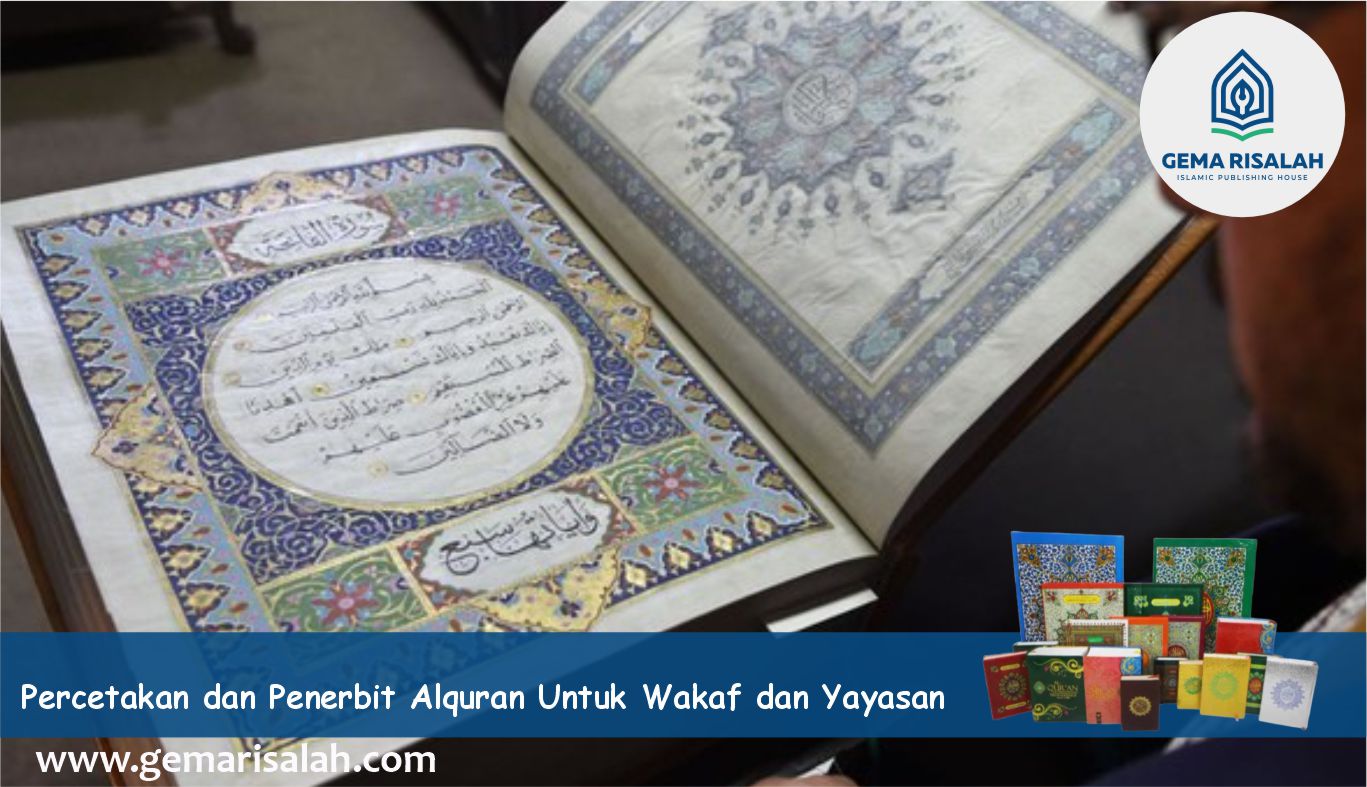 GEMA RISALAH
ISLAMIC PUBLISHING HOUSE
سورة الفاتحة
بسم الله الرحمن الرحيم
الحمد لله رب العلمين
الرحمن الرحيم ملك يوم الدين
اياك نعبد واياك نستعين اهدنا
الصرط المستقيم صرط الذين انعمت
عليهم غير المغضوب عليهم
ولا الضالين
وآياتها سبع
Percetakan dan Penerbit Alquran Untuk Wakaf dan Yayasan
www.gemarisalah.com